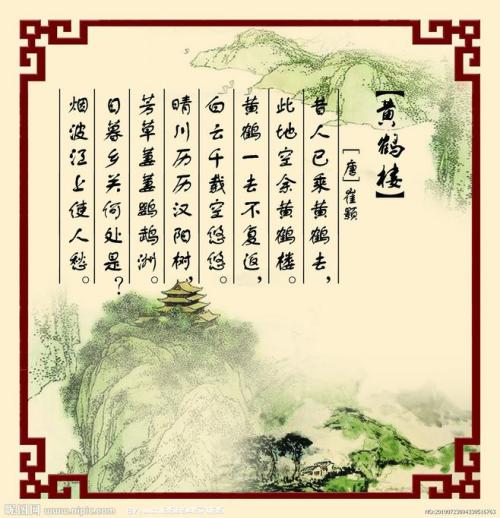 【黄鹤楼】
［唐］崔颢
昔人已乘黄鹤去，
此地空余黄鹤楼。
黄鹤一去不复返，
白云千载空悠悠。
晴川历历汉阳树，
芳草萋萋鹦鹉洲。
日暮乡关何处是？
烟波江上使人愁。
昵图网 www.nipic.com